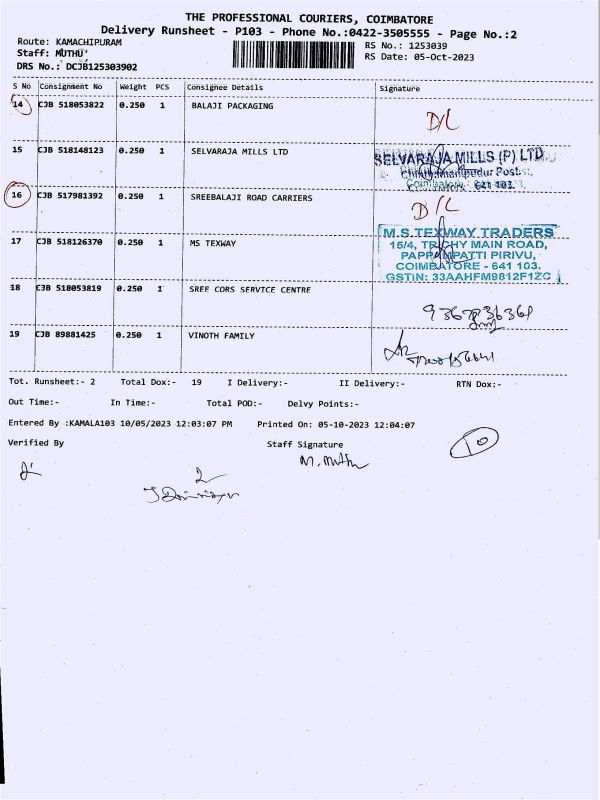 THE PROFESSIONAL COURIERS, COIMBATORE
Delivery Runsheet - P103 - Phone No.:0422-3505555 - Page No.:2
Route: KAMACHIPURAM
RS No.: 1253039
Staff: MUTHU
RS Date: 05-Oct-2023
DRS No.: DCJB125303902
S No Consignment No Weight PCS Consignee Details Signature
14 CJB 518053822 0.250 1 BALAJI PACKAGING
D/L
15 CJB 518148123 0.250 1 SELVARAJA MILLS LTD
SELVARAJA MILLS (P) LTD
Coimbatore - 641 103.
16 CJB 517981392 0.250 1 SREEBALAJI ROAD CARRIERS
D/L
17 CJB 518126370 0.250 1 MS TEXWAY
M.S.TEXWAY TRADERS
16/4, TRICHY MAIN ROAD,
PAPPAMPATTI PIRIVU,
COIMBATORE - 641 103.
GSTIN: 33AAHFM9812F1ZC
18 CJB 518053819 0.250 1 SREE CORS SERVICE CENTRE
19 CJB 89881425 0.250 1 VINOTH FAMILY
Tot. Runsheet:- 2 Total Dox:- 19 I Delivery:- II Delivery:- RTN Dox:-
Out Time:- In Time:- Total POD:- Delvy Points:-
Entered By :KAMALA103 10/05/2023 12:03:07 PM Printed On: 05-10-2023 12:04:07
Verified By Staff Signature
10
M. Muthu